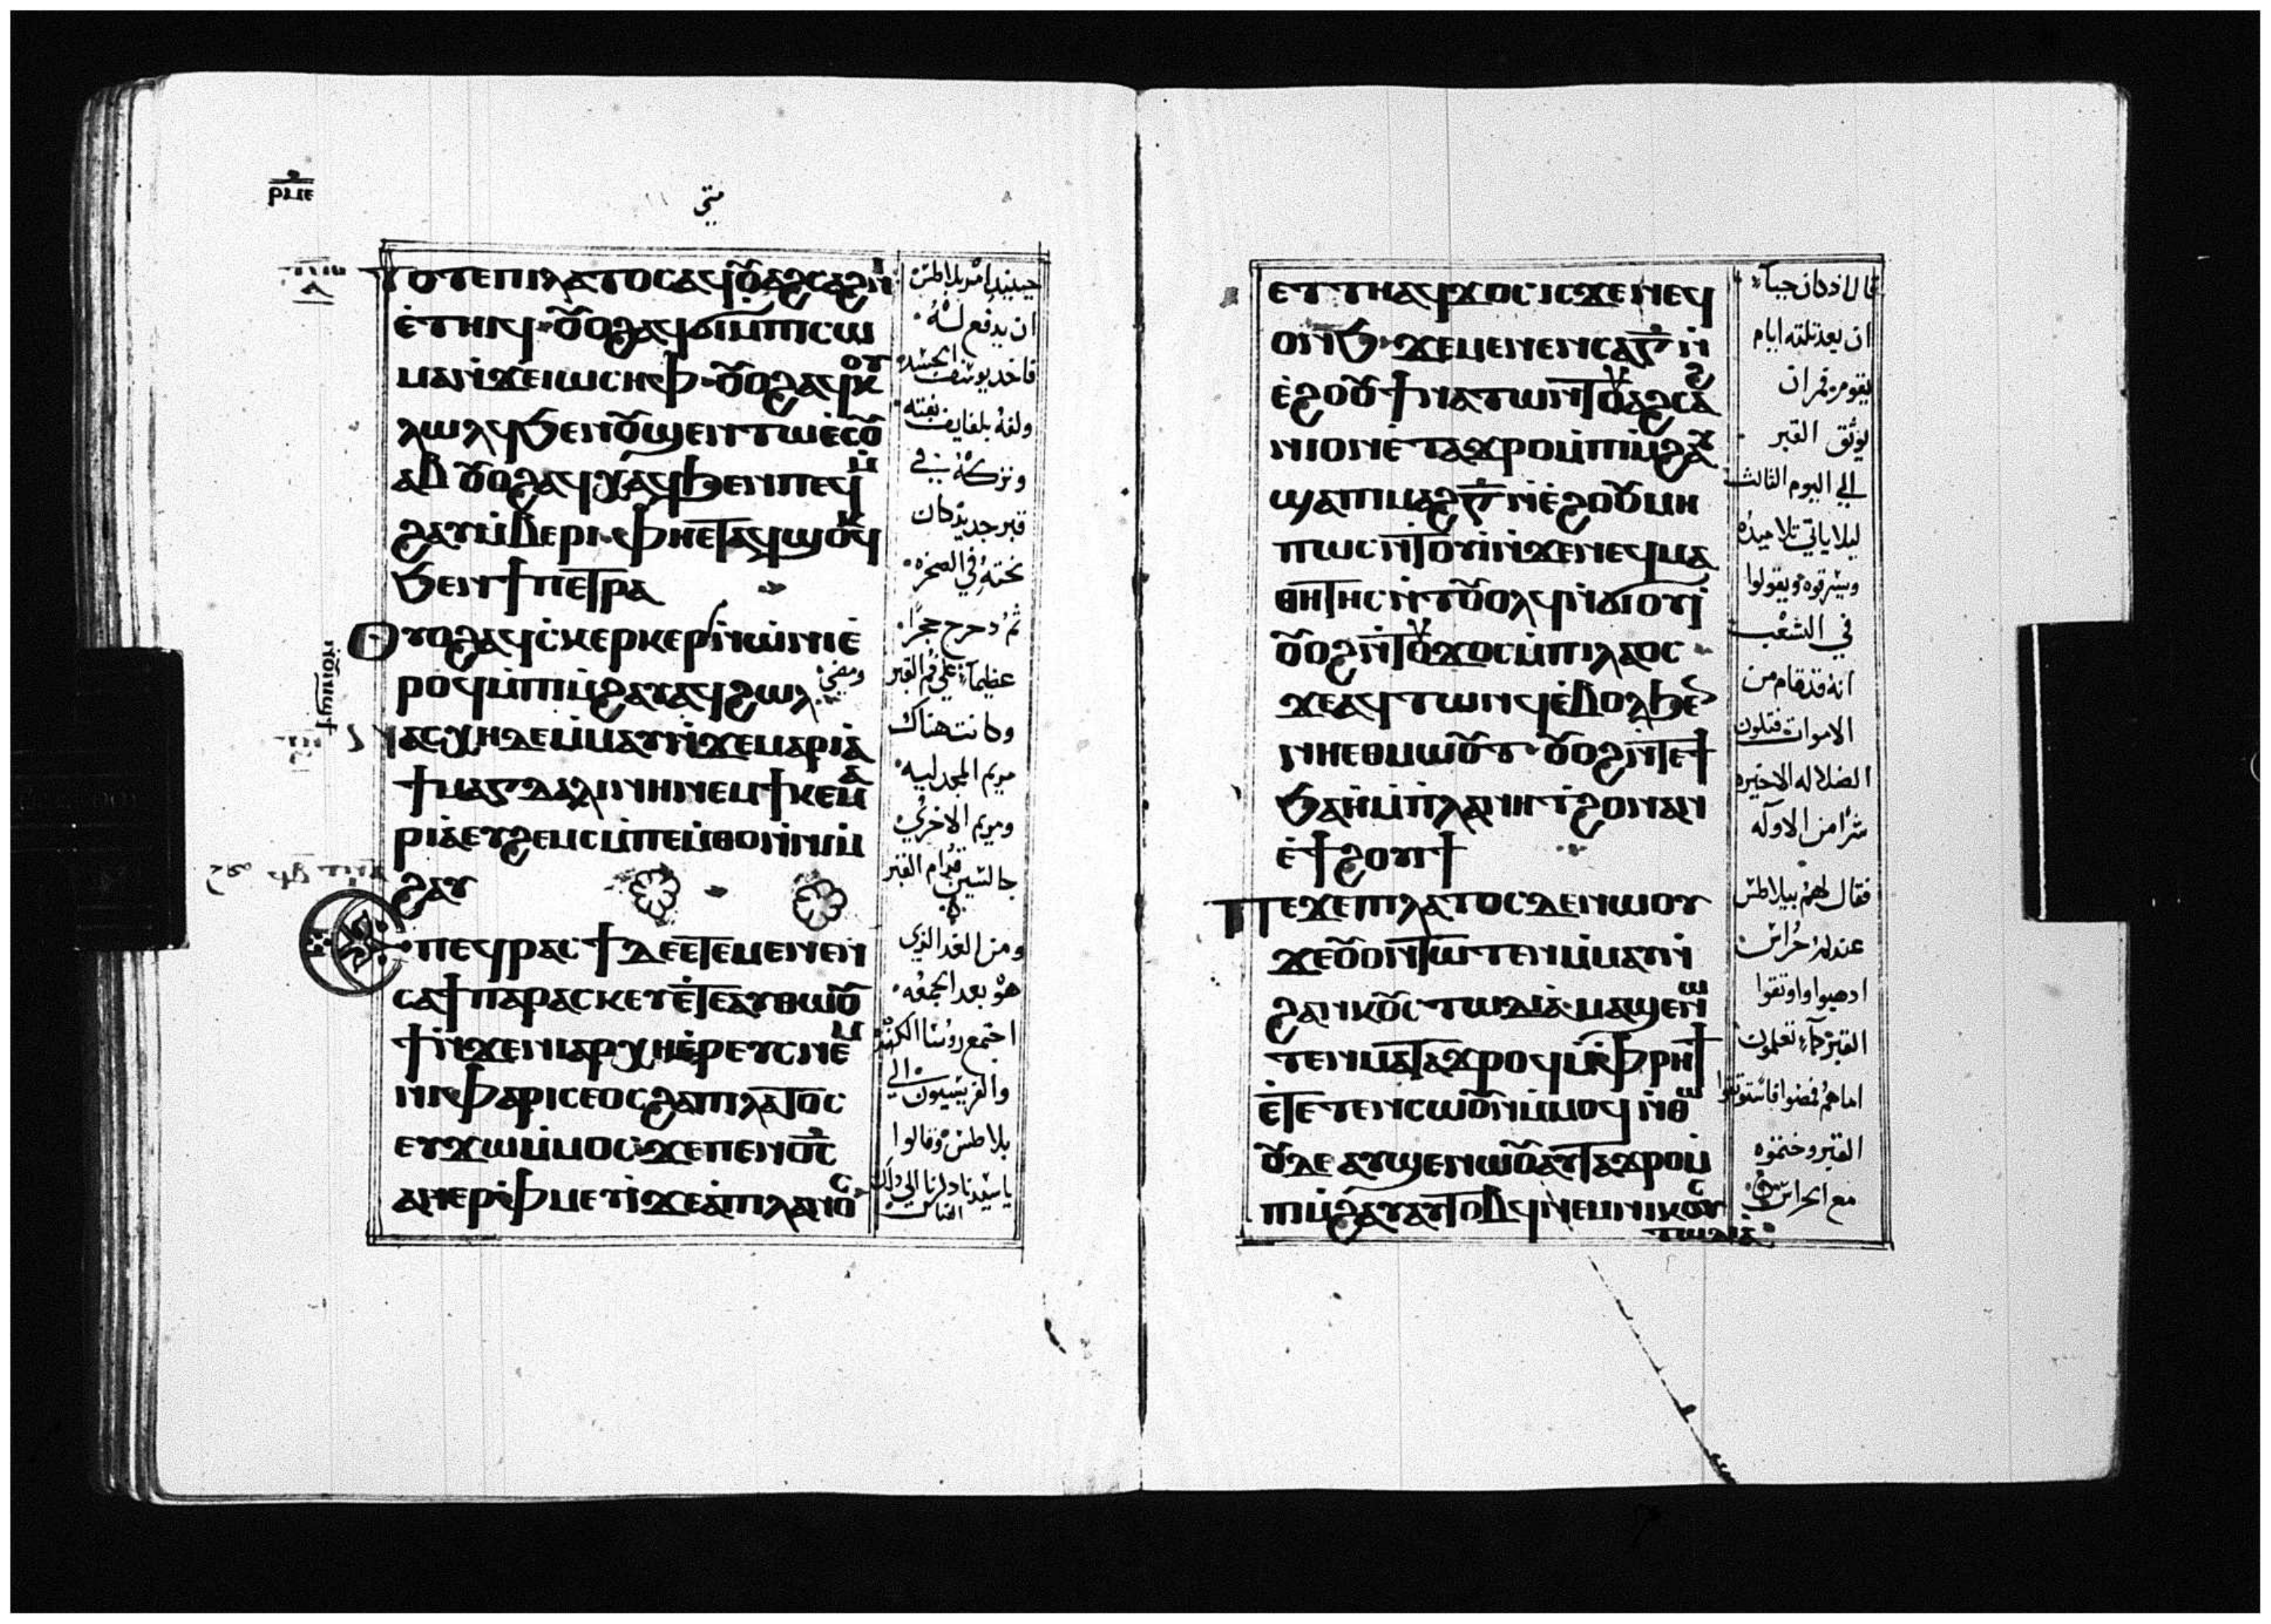 متي
ⲧⲟⲧⲉⲡⲓⲗⲁⲧⲟⲥⲁϥⲟⲩⲁϩⲥⲁϩⲛⲓ
ⲉ̀ⲧⲏⲓϥ ⲟⲩⲟϩⲁϥϭⲓⲙ̀ⲡⲓⲥⲱ
ⲙⲁⲛ̀ϫⲉⲓⲱⲥⲏⲫ ⲟⲩⲟϩⲁϥⲕⲟⲩ
ⲗⲱⲗϥϧⲉⲛⲟⲩϣⲉⲛⲧⲱⲉ̀ⲥⲟⲩ
ⲁⲃ ⲟⲩⲟϩⲁϥⲭⲁϥϧⲉⲛⲡⲉϥⲙ̀
ϩⲁⲩⲙ̀ⲃⲉⲣⲓ ⲫⲏⲉⲧⲁϥϣⲟⲕϥ
ϧⲉⲛϯⲡⲉⲧⲣⲁ
ⲟⲩⲟϩⲁϥⲥⲕⲉⲣⲕⲉⲣⲟⲩⲛⲓϣϯⲛ̀ⲱ̀ⲛⲓⲉ̀
ⲣⲟϥⲙ̀ⲡⲓⲙ̀ϩⲁⲩⲁϥϩⲱⲗ
ⲛⲁⲥⲭⲏⲇⲉⲙ̀ⲙⲁⲩⲛ̀ϫⲉⲙⲁⲣⲓⲁ
ϯⲙⲁⲅⲇⲁⲗⲓⲛⲏⲛⲉⲙϯⲕⲉⲙⲁ
ⲣⲓⲁⲉⲩϩⲉⲙⲥⲓⲙ̀ⲡⲉⲙ̀ⲑⲟⲛ̀ⲛⲓⲙ̀
ϩⲁⲩ
ⲡⲉϥⲣⲁⲥϯⲇⲉⲉⲧⲉⲙⲉⲛⲉⲛ
ⲥⲁϯⲡⲁⲣⲁⲥⲕⲉⲩⲉ̀ⲧⲉⲁⲩⲑⲱⲟⲩ
ϯⲛ̀ϫⲉⲛⲓⲁⲣⲭⲏⲉ̀ⲣⲉⲩⲥⲛⲉⲙ
ⲛⲓⲫⲁⲣⲓⲥⲉⲟⲥϩⲁⲡⲓⲗⲁⲧⲟⲥ
ⲉⲩϫⲱⲙ̀ⲙⲟⲥ ϫⲉⲡⲉⲛⲟ̅ⲥ̅
ⲁⲛⲉⲣⲫⲙⲉⲩⲓ̀ϫⲉⲁⲡⲓⲡⲗⲁⲛⲟⲥ
حينيذ امر بيلاطس
ان يدفع له
فاخد يوسف الجسد
ولفه بلفايف نقيه
وتركه في
قبر جديد كان
نحته في الصخره
ثم دحرج حجرا
عظيما علي فم القبر
ومضي
وكانت هناك
مريم المجدليه
ومريم الاخري
جالستين قدام القبر
ومن الغد الذي
هو بعد الجمعه
اجتمع روسا الكهنه
والفريسيون الي
بيلاطس وقالوا
ياسيدنا ذكرنا ان ذلك
ⲉⲧⲧⲏⲁϥϫⲟⲥ ⲓⲥϫⲉⲛⲉϥ
ⲟⲛϧ ϫⲉⲙⲉⲛⲉⲛⲥⲁⲅ̅ⲛ̀
ⲉ̀ϩⲟⲟⲩϯⲛⲁⲧⲱⲛⲧ ⲟⲩⲁϩⲥⲁϩ
ⲛⲓⲟⲛⲉ̀ⲧⲁϫⲣⲟⲙ̀ⲡⲓⲙ̀ϩⲁⲩ
ϣⲁⲡⲓⲙⲁϩⲅ̅ⲛ̀ⲉ̀ϩⲟⲟⲩⲙⲏ
ⲡⲱⲥⲛ̀ⲧⲟⲩⲓ̀ⲛ̀ϫⲉⲛⲉϥⲙⲁ
ⲑⲏⲧⲏⲥⲛ̀ⲧⲟⲩⲟⲗϥⲛ̀ϭⲓⲟⲩⲓ̀
ⲟⲩⲟϩⲛ̀ⲧⲟⲩϫⲟⲥⲙ̀ⲡⲓⲗⲁⲟⲥ
ϫⲉⲁϥⲧⲱⲛϥⲉ̀ⲃⲟⲗϧⲉⲛ
ⲛⲏⲉⲑⲙⲱⲟⲩⲧ ⲟⲩⲟϩⲛ̀ⲧⲉϯ
ϧⲁⲏ̀ⲙ̀ⲡⲗⲁⲛⲏⲧϩⲟⲛⲁⲛ
ⲉ̀ϯϩⲟⲩⲓϯ
ⲡⲉϫⲉⲡⲓⲗⲁⲧⲟⲥⲇⲉⲛⲱⲟⲩ
ϫⲉⲟⲩⲟⲛⲧⲱⲧⲉⲛⲙ̀ⲙⲁⲩⲛ̀
ϩⲁⲛⲕⲟⲩⲥⲧⲱⲇⲓⲁ ⲙⲁϣⲉⲛⲱ
ⲧⲉⲛⲙⲁⲧⲁϫⲣⲟϥⲙ̀ⲫⲣⲏϯ
ⲉ̀ⲧⲉⲧⲉⲛⲥⲱⲟⲩⲛⲙ̀ⲙⲟϥ ⲛ̀ⲑⲱ
ⲟⲩⲇⲉⲁⲩϣⲉⲛⲱⲟⲩⲁⲩⲧⲁϫⲣⲟⲙ̀
ⲡⲓⲙ̀ϩⲁⲩⲁⲩⲧⲟⲃϥⲛⲉⲙⲛⲓⲕⲟⲩⲥ
ⲧⲱⲇⲓⲁ
قال اذ كان حيا
ان بعد تلته ايام
يقوم فمر ان
يوثق القبر
الي اليوم الثالث
ليلا ياتي تلاميده
ويسرقوه ويقولوا
في الشعب
انه قد قام من
الاموات فتكون
الضلاله الاخيره
شرا من الاوله
فقال لهم بيلاطس
عندكم حراس
ادهبوا واوتقوا
القبر كما تعلمون
اما هم فمضوا فاستوتقوا
القبر وختموه
مع الحراس